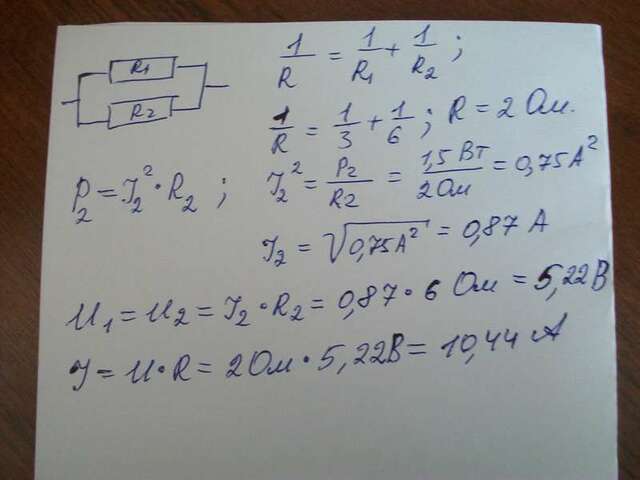 R1
R2
1/R = 1/R₁ + 1/R₂ ;
1/R = 1/3 + 1/6 ; R = 2 Ом.
P₂ = I₂² · R₂ ; I₂² = P₂/R₂ = 1,5 Вт/2 Ом = 0,75 А²
I₂ = √0,75А² = 0,87 А
U₁ = U₂ = I₂ · R₂ = 0,87 · 6 Ом = 5,22 В
I = U · R = 2 Ом · 5,22 В = 10,44 А